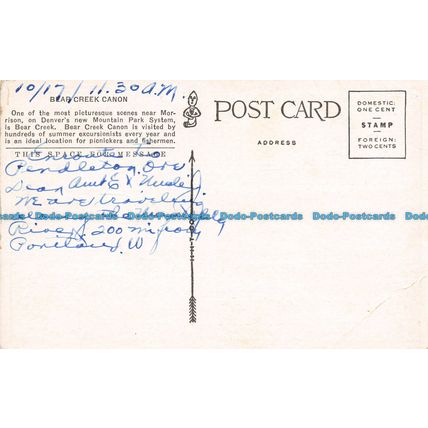 10/17/ 11.30 A.M.
BEAR CREEK CANON
One of the most picturesque scenes near Mor-
rison, on Denver's new Mountain Park System,
is Bear Creek. Bear Creek Canon is visited by
hundreds of summer excursionists every year and
is an ideal location for picnickers and fishermen.
THIS SPACE FOR MESSAGE
Pendleton, Ore
Dear Aunt E &
We are traveling
along the
River. 200 mi from
Portland. W
POST CARD
ADDRESS
DOMESTIC:
ONE CENT
STAMP
FOREIGN:
TWO CENTS
Dodo-Postcards Dodo-Postcards Dodo-Postcards Dodo-Postcards Dodo-Postcards